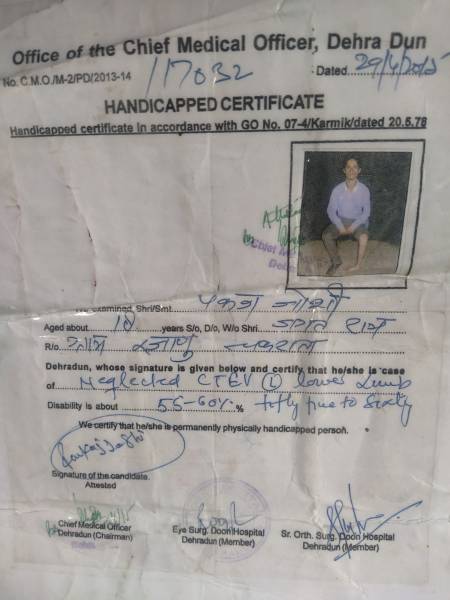 Office of the Chief Medical Officer, Dehra Dun
No. C.M.O./M-2/PD/2013-14 /17032 Dated 29/4/2015
HANDICAPPED CERTIFICATE
Handicapped certificate in accordance with GO No. 07-4/Karmik/dated 20.5.78
Chief
examined, Shri/Smt. जोशी
Aged about 18 years S/o, D/o, W/o Shri राम
R/o ग्राम
Dehradun, whose signature is given below and certify that he/she is case
of Neglected CTEV (L) lower Limb
Disability is about 55-60% % fifty five to sixty
We certify that he/she is permanently physically handicapped person.
Signature of the candidate.
Attested
Chief Medical Officer
Dehradun (Chairman)
Eye Surg. Doon Hospital
Dehradun (Member)
Sr. Orth. Surg. Doon Hospital
Dehradun (Member)